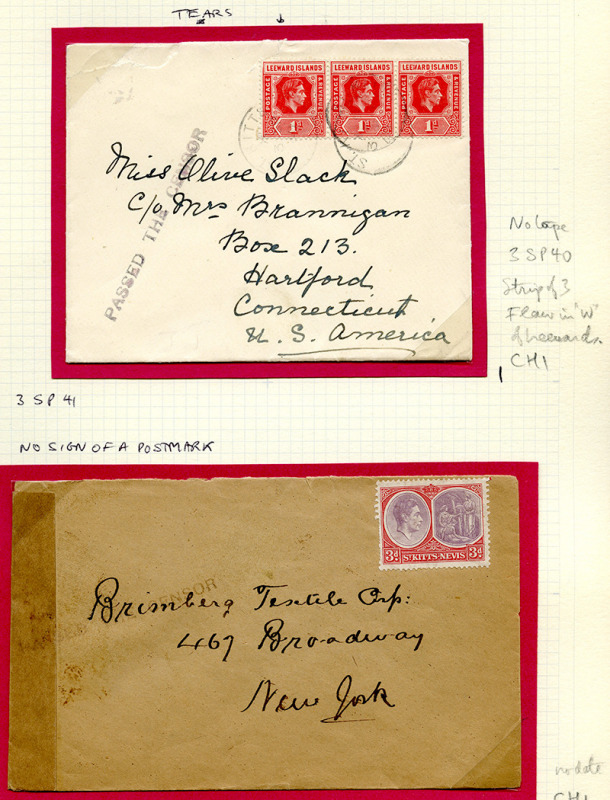 TEARS
LEEWARD ISLANDS LEEWARD ISLANDS LEEWARD ISLANDS
POSTAGE & REVENUE POSTAGE & REVENUE POSTAGE & REVENUE
1d 1d 1d
PASSED THE CENSOR
Miss Olive Slack
c/o Mrs Brannigan
Box 213.
Hartford
Connecticut
U. S. America
No tape
3 SP 40
Strip of 3
Flaw in "W"
of Leewards.
CH1
3 SP 41
NO SIGN OF A POSTMARK
3d ST KITTS-NEVIS 3d
CENSOR
Brimberg Textile Corp:
467 Broadway
New York
no date
CH1